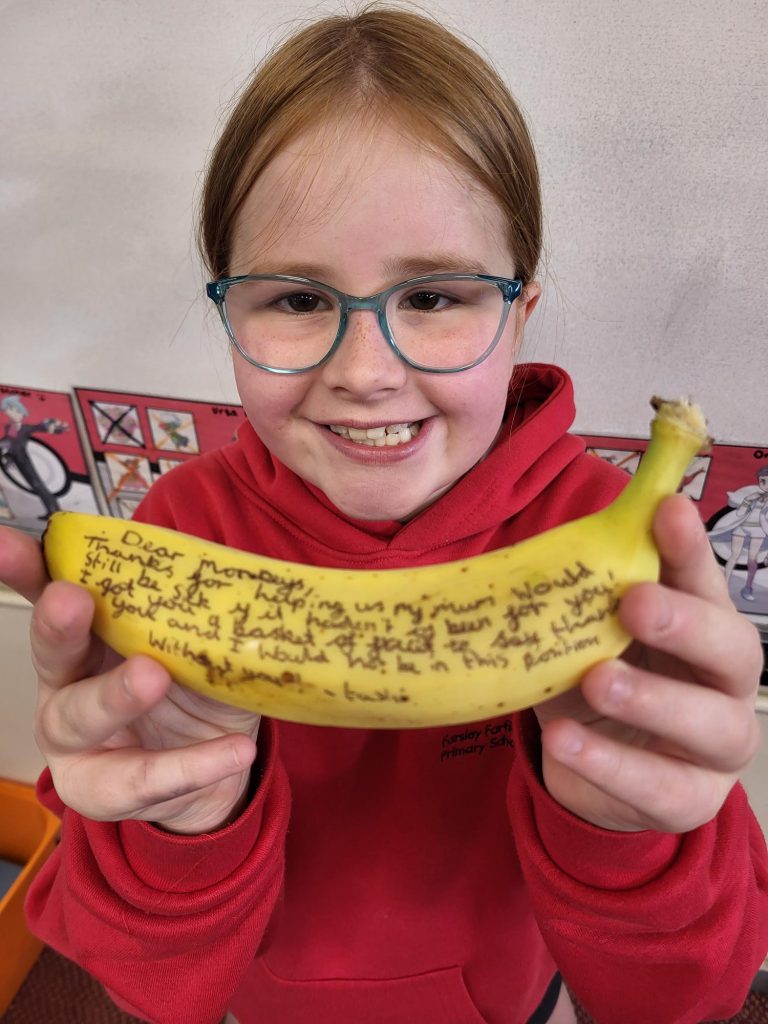 Dear Monkeys,
Thanks for helping us my mum would
still be sik if it hadn't been for you,
I got you a basket of fruit to say thank
you and I would not be in this position
Without you! - 
Farsley Farfi
Primary Scho